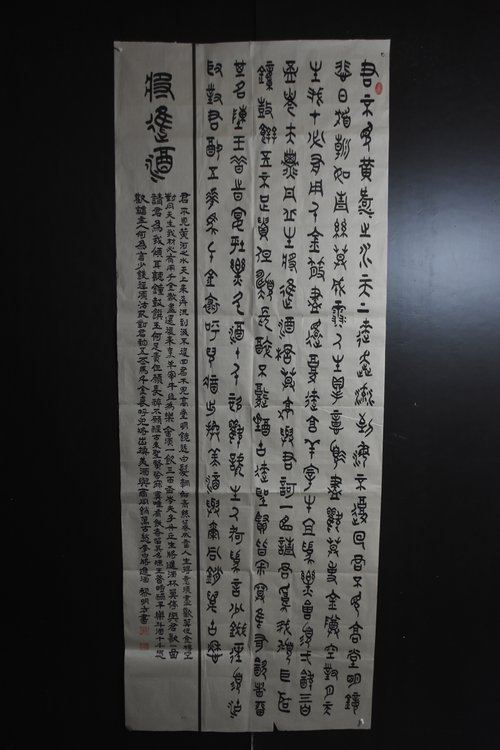 君不見黃河之水天上來奔流到海不復回君不見高堂明鏡
悲白髮朝如青絲暮成雪人生得意須盡歡莫使金樽空對月天
生我材必有用千金散盡還復來烹羊宰牛且為樂會須一飲三百
杯岑夫子丹丘生將進酒杯莫停與君歌一曲請君為我傾耳聽
鐘鼓饌玉不足貴但願長醉不願醒古來聖賢皆寂寞惟有飲者留
其名陳王昔時宴平樂斗酒十千恣歡謔主人何為言少錢徑須沽
取對君酌五花馬千金裘呼兒將出換美酒與爾同銷萬古愁
將進酒
君不見黃河之水天上來奔流到海不復回君不見高堂明鏡悲白髮朝如青絲暮成雪人生得意須盡歡莫使金樽空
對月天生我材必有用千金散盡還復來烹羊宰牛且為樂會須一飲三百杯岑夫子丹丘生將進酒杯莫停與君歌一曲
請君為我傾耳聽鐘鼓饌玉何足貴但願長醉不願醒古來聖賢皆寂寞惟有飲者留其名陳王昔時宴平樂斗酒十千恣
歡謔主人何為言少錢徑須沽取對君酌五花馬千金裘呼兒將出換美酒與爾同銷萬古愁李白將進酒黎明方書